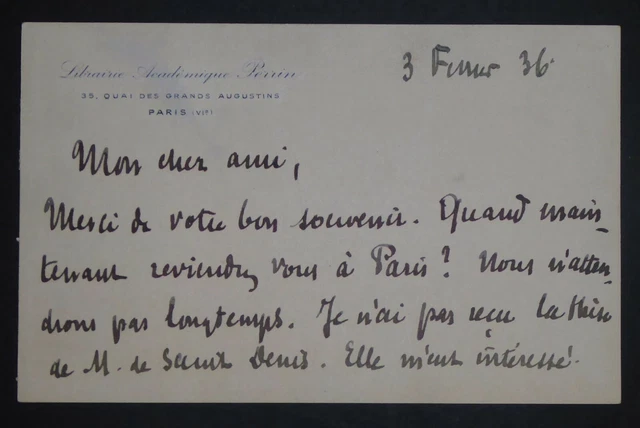 Librairie Académique Perrin
35, QUAI DES GRANDS AUGUSTINS
PARIS (VIe)
3 Fevrier 36
Mon cher ami,
Merci de votre bon souvenir. Quand main-
tenant reviendrez vous à Paris? Nous n'atten-
drons pas longtemps. Je n'ai pas reçu la thèse
de M. de Saint Denis. Elle m'eut intéressé.